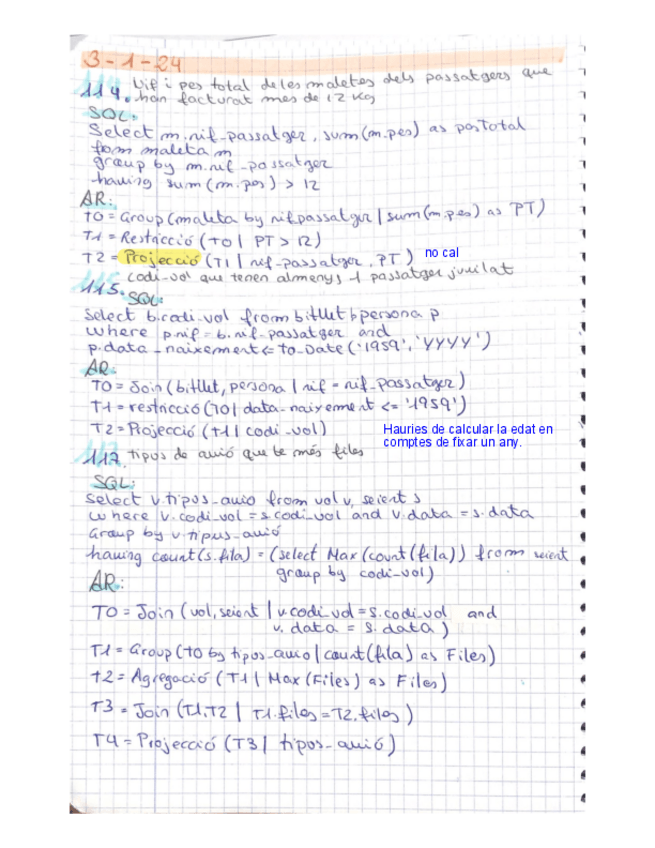 3-1-24
114. Nif i pes total de les maletes dels passatgers que
han facturat mes de 12 Kg
SQL:
Select m.nif_passatger, sum(m.pes) as pesTotal
from maleta m
group by m.nif_passatger
having sum(m.pes) > 12
AR:
T0 = Group (maleta by nif passatger | sum(m.pes) as PT)
T1 = Restricció (T0 | PT > 12)
T2 = Projecció (T1 | nif-passatger, PT) no cal
115. codi-vol que tenen almenys 1 passatger jubilat
SQL:
Select b.codi-vol from bitllet b, persona p
where p.nif = b.nif_passatger and
p.data_naixement <= To_Date('1959', 'YYYY')
AR:
T0 = Join (bitllet, persona | nif = nif_passatger)
T1 = restricció (T0 | data-naixement <= '1959')
T2 = Projecció (T1 | codi-vol)
Hauries de calcular la edat en
comptes de fixar un any.
117. tipus de avió que te més files
SQL:
Select v.tipus_avio from vol v, seient s
where v.codi_vol = s.codi_vol and v.data = s.data
Group by v.tipus_avió
having count(s.fila) = (select Max(count(fila)) from seient
group by codi-vol)
AR:
T0 = Join (vol, seient | v.codi_vol = s.codi_vol and
v.data = s.data)
T1 = Group (T0 by tipus_avio | count(fila) as Files)
t2 = Agregació (T1 | Max(Files) as Files)
T3 = Join (T1, T2 | T1.files = T2.files)
T4 = Projecció (T3 | tipus_avió)